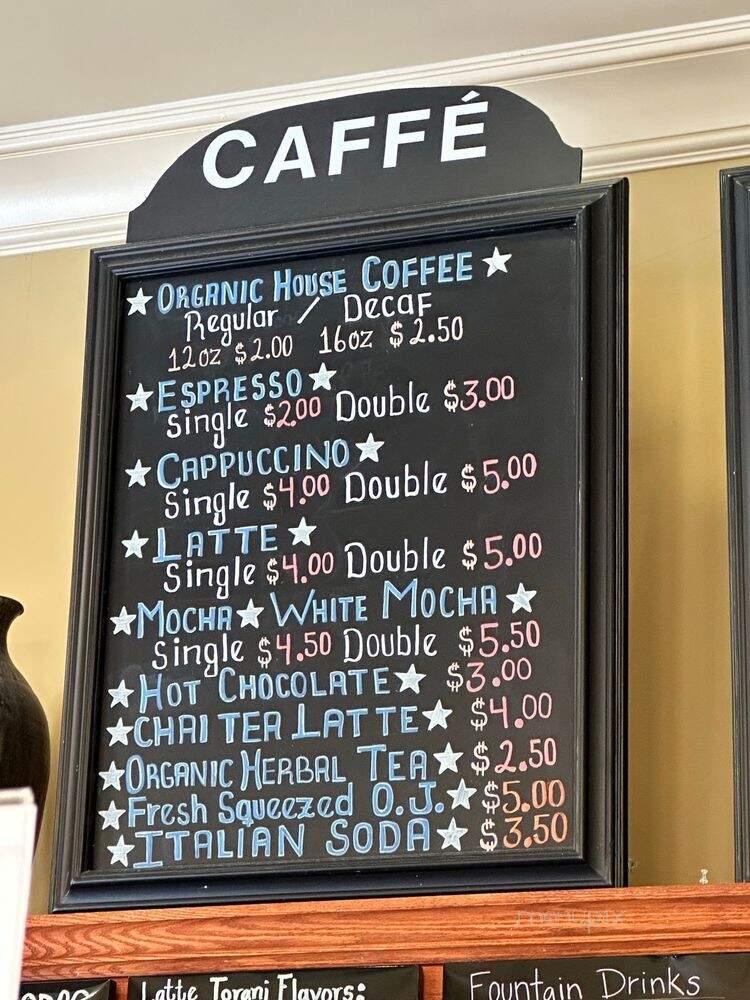 CAFFÉ
★ ORGANIC HOUSE COFFEE ★
Regular / Decaf
12oz $2.00 16oz $2.50
★ ESPRESSO ★
Single $2.00 Double $3.00
★ CAPPUCCINO ★
Single $4.00 Double $5.00
★ LATTE ★
Single $4.00 Double $5.00
★ MOCHA ★ WHITE MOCHA ★
Single $4.50 Double $5.50
★ HOT CHOCOLATE ★ $3.00
★ CHAI TEA LATTE ★ $4.00
★ ORGANIC HERBAL TEA ★ $2.50
★ Fresh Squeezed O.J. ★ $5.00
★ ITALIAN SODA ★ $3.50
menupix
Latte Torani Flavors:
Fountain Drinks